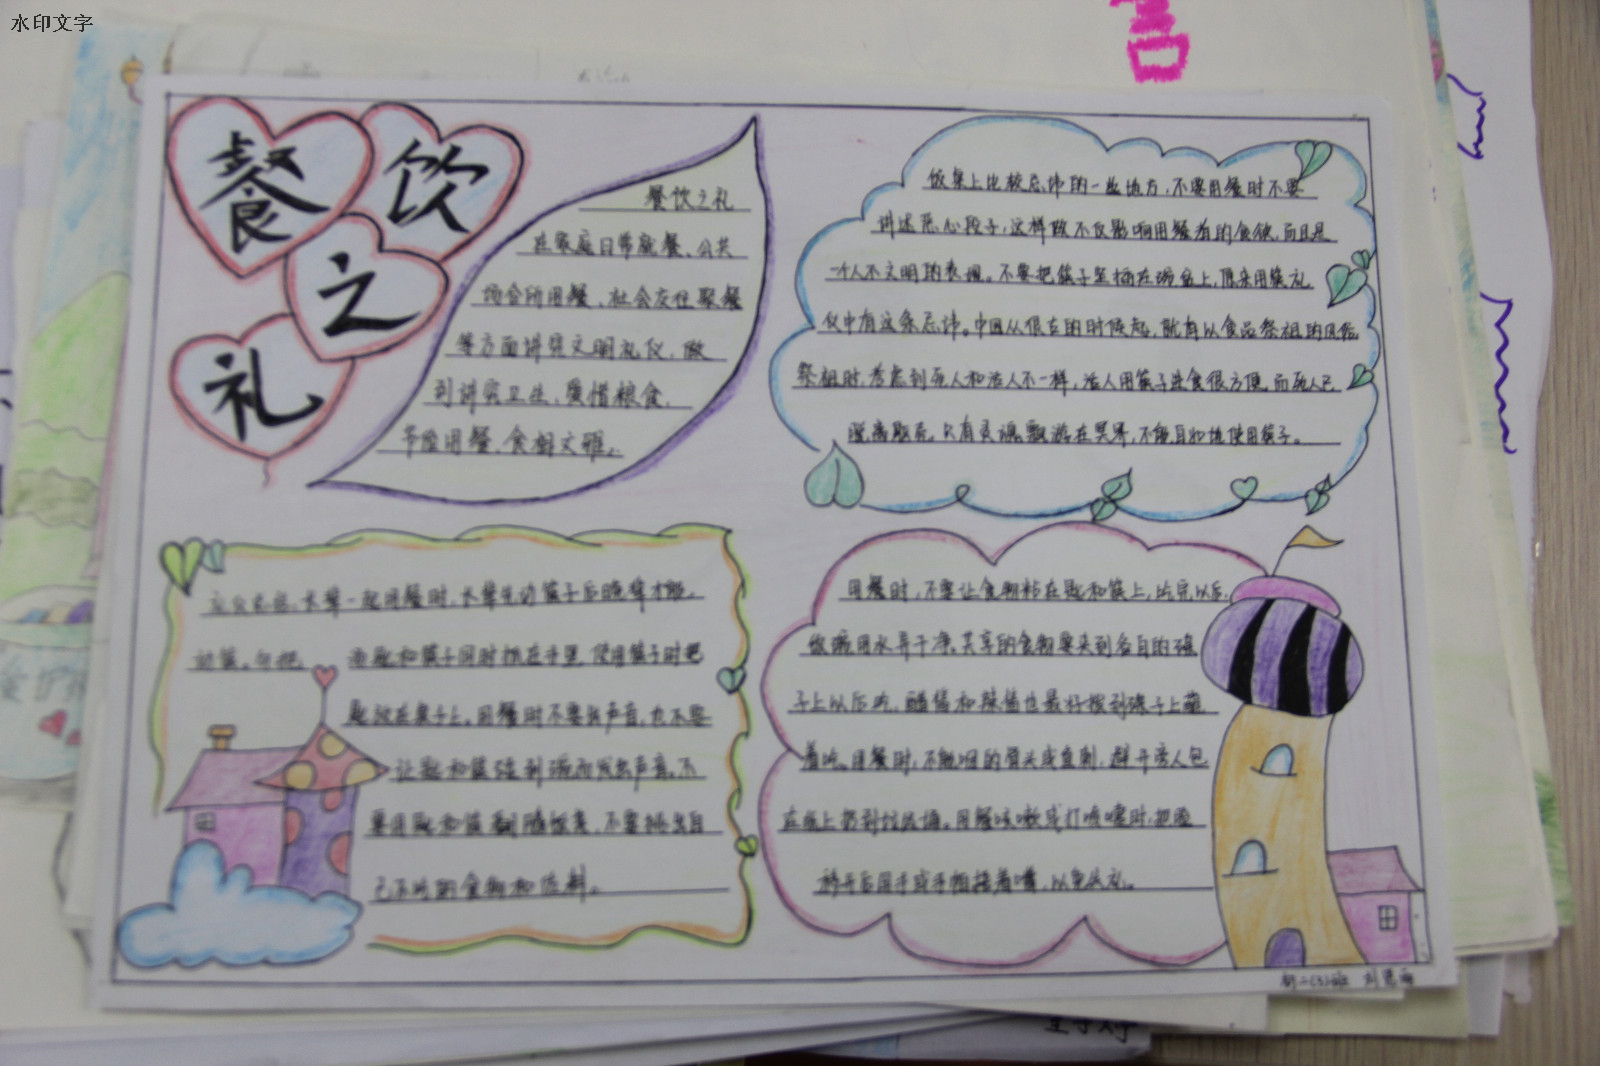 水印文字
餐饮
之
礼
餐饮之礼
在家庭日常就餐、公共
场合所用餐、社会交往聚餐
等方面讲究文明礼仪,做
到讲究卫生,爱惜粮食,
节俭用餐、食相文雅。
饭桌上比较忌讳的一些地方,不要用餐时不要
讲述恶心段子,这样做不仅影响用餐者的食欲,而且是
一个人不文明的表现。不要把筷子竖插在碗盆上,原来用筷礼
仪中有这条忌讳。中国从很古的时候起,就有以食品祭祖的风俗
祭祖时,考虑到死人和活人不一样,活人用筷子进食很方便,而死人已
脱离躯壳,只有灵魂飘游在冥界,不能自如地使用筷子。
长辈一起用餐时,长辈先动筷子后晚辈才能
动筷。勿把
匙和筷子同时抓在手里,使用筷子时把
匙放在桌子上。用餐时不要出声音,也不要
让匙和筷碰到碗而发出声音。不
要用匙和筷翻腾饭菜,不要挑出自
己不吃的食物和佐料。
用餐时,不要让食物粘在匙和筷上,吃完以后,
饭碗用水弄干净。共享的食物要夹到各自的碟
子上以后吃,醋酱和辣酱也最好拨到碟子上蘸
着吃。用餐时,不能咽的骨头或鱼刺,避开旁人包
在纸上扔到垃圾桶。用餐咳嗽或打喷嚏时,把脸
移开后用手或手帕捂着嘴,以免失礼。
初二(3)班 刘